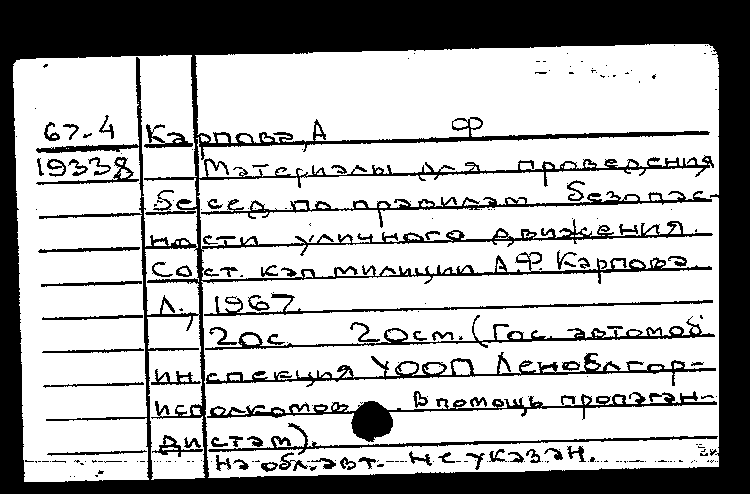 67-4 Карпова, А Ф
19338 Материалы для проведения
бесед по правилам безопас-
ности уличного движения.
Сост. кап милиции А.Ф. Карпова
Л., 1967.
20с. 20см. (Гос. автомоб
инспекция УООП Леноблгор-
исполкомов. В помощь пропаган-
дистам).
На обл. авт. не указан.